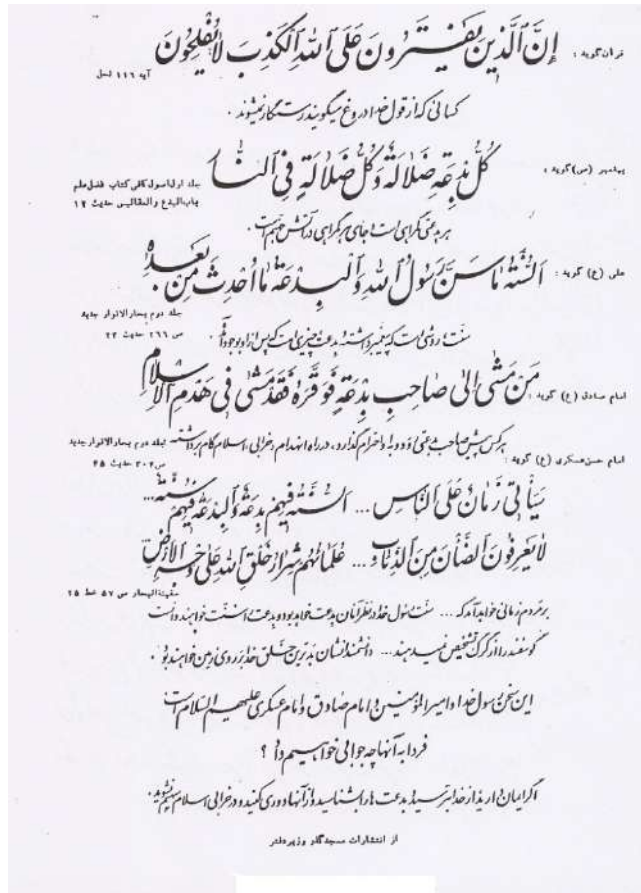 قرآن گوید : إِنَّ ٱلَّذِينَ يَفْتَرُونَ عَلَى ٱللهِ ٱلْكَذِبَ لَا يُفْلِحُونَ
آیه ۱۱۶ نحل
کسانی که از قول خدا دروغ میگویند رستگار نمیشوند .
پیغمبر (ص) گوید : كُلُّ بِدْعَةٍ ضَلَالَةٌ وَ كُلُّ ضَلَالَةٍ فِي ٱلنَّار
جلد اول اصول کافی کتاب فضل علم
باب البدع و المقائیس حدیث ۱۲
هر بدعتی گمراهی است و جای هر گمراهی در آتش جهنم است .
علی (ع) گوید : اَلسُّنَّةُ مَا سَنَّ رَسُولُ ٱللهِ وَ ٱلْبِدْعَةُ مَا اُحْدِثَ مِنْ بَعْدِهِ
جلد دوم بحار الانوار جدید
ص ۲۶۶ حدیث ۲۳
سنت، روشی است که پیغمبر داشته و بدعت چیزی است که پس از او بوجود آمد
امام صادق (ع) گوید : مَنْ مَشىٰ اِلىٰ صَاحِبِ بِدْعَةٍ فَوَقَّرَهُ فَقَدْ مَشىٰ فِي هَدْمِ الْاِسْلَامِ
هر کس پیش صاحب بدعتی رود و به او احترام گذارد ، در راه انهدام و خرابی ، اسلام گام برداشته
جلد دوم بحار الانوار جدید
ص ۳۰۴ حدیث ۴۵
امام حسن عسکری (ع) گوید :
سَيَأْتِي زَمَانٌ عَلَى النَّاسِ ... اَلسُّنَّةُ فِيهِمْ بِدْعَةٌ وَ الْبِدْعَةُ فِيهِمْ سُنَّةٌ ...
لَا يَعْرِفُونَ الضَّأْنَ مِنَ الذِّئَابِ ... عُلَمَائُهُمْ شِرَارُ خَلْقِ اللهِ عَلىٰ وَجْهِ الْاَرْضِ
سفینة البحار ص ۵۷ خط ۲۵
بر مردم زمانی خواهد آمد که ... سنت رسول خدا در نظر آنان بدعت خواهد بود و بدعت را سنت خواهند دانست
گوسفند را از گرگ تشخیص نمیدهند ... دانشمندانشان بدترین خلق خدا بر روی زمین خواهند بود .
این سخن رسول خدا و امیر المؤمنین و امام صادق و امام عسکری علیهم السلام است
فردا به آنها چه جوابی خواهیم داد ؟
اگر ایمان دارید از خدا بترسید و بدعت ها را بشناسید و از آنها دوری کنید و در خرابی اسلام سهیم نشوید .
از انتشارات مسجد گذر وزیر دفتر